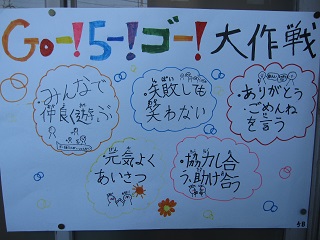 Go-!5-!ゴー!大作戦
・みんなで
仲良く遊ぶ
・失敗しても
笑わない
・ありがとう
ごめんねを
言う
・元気よく
あいさつ
・協力し合
う、助け合う